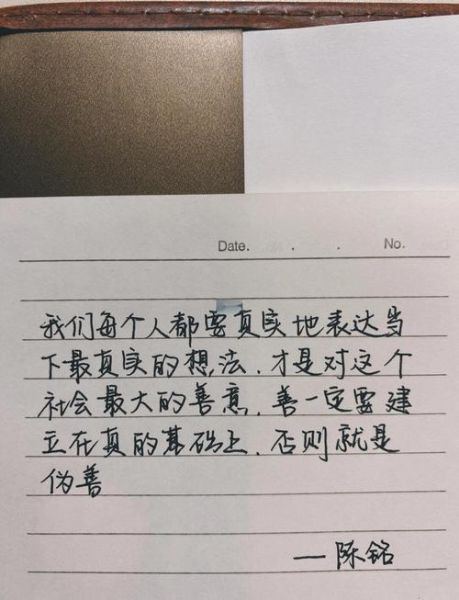 Date. . . No.
我们每个人都要真实地表达当
下最真实的想法,才是对这个
社会最大的善意,善一定要建
立在真的基础上,否则就是
伪善
—陈铭